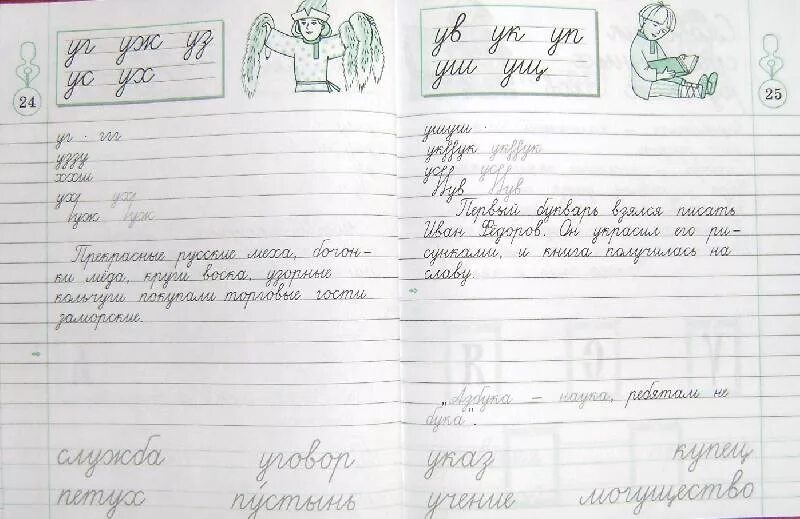 уг уж уз
ус ух
24
уг · ггг
уззу
ххш
уху уху
Вуж Вуж
Прекрасные русские меха, бочон-
ки мёда, круги воска, узорные
кольчуги покупали торговые гости
заморские.
служба уговор
петух пустынь
ув ук уп
уш ущ
25
ушуш ·
Первый букварь взялся писать
Иван Фёдоров. Он украсил его ри-
сунками, и книга получилась на
славу.
„Азбука – наука, ребятам не
бука".
указ купец
учение могущество